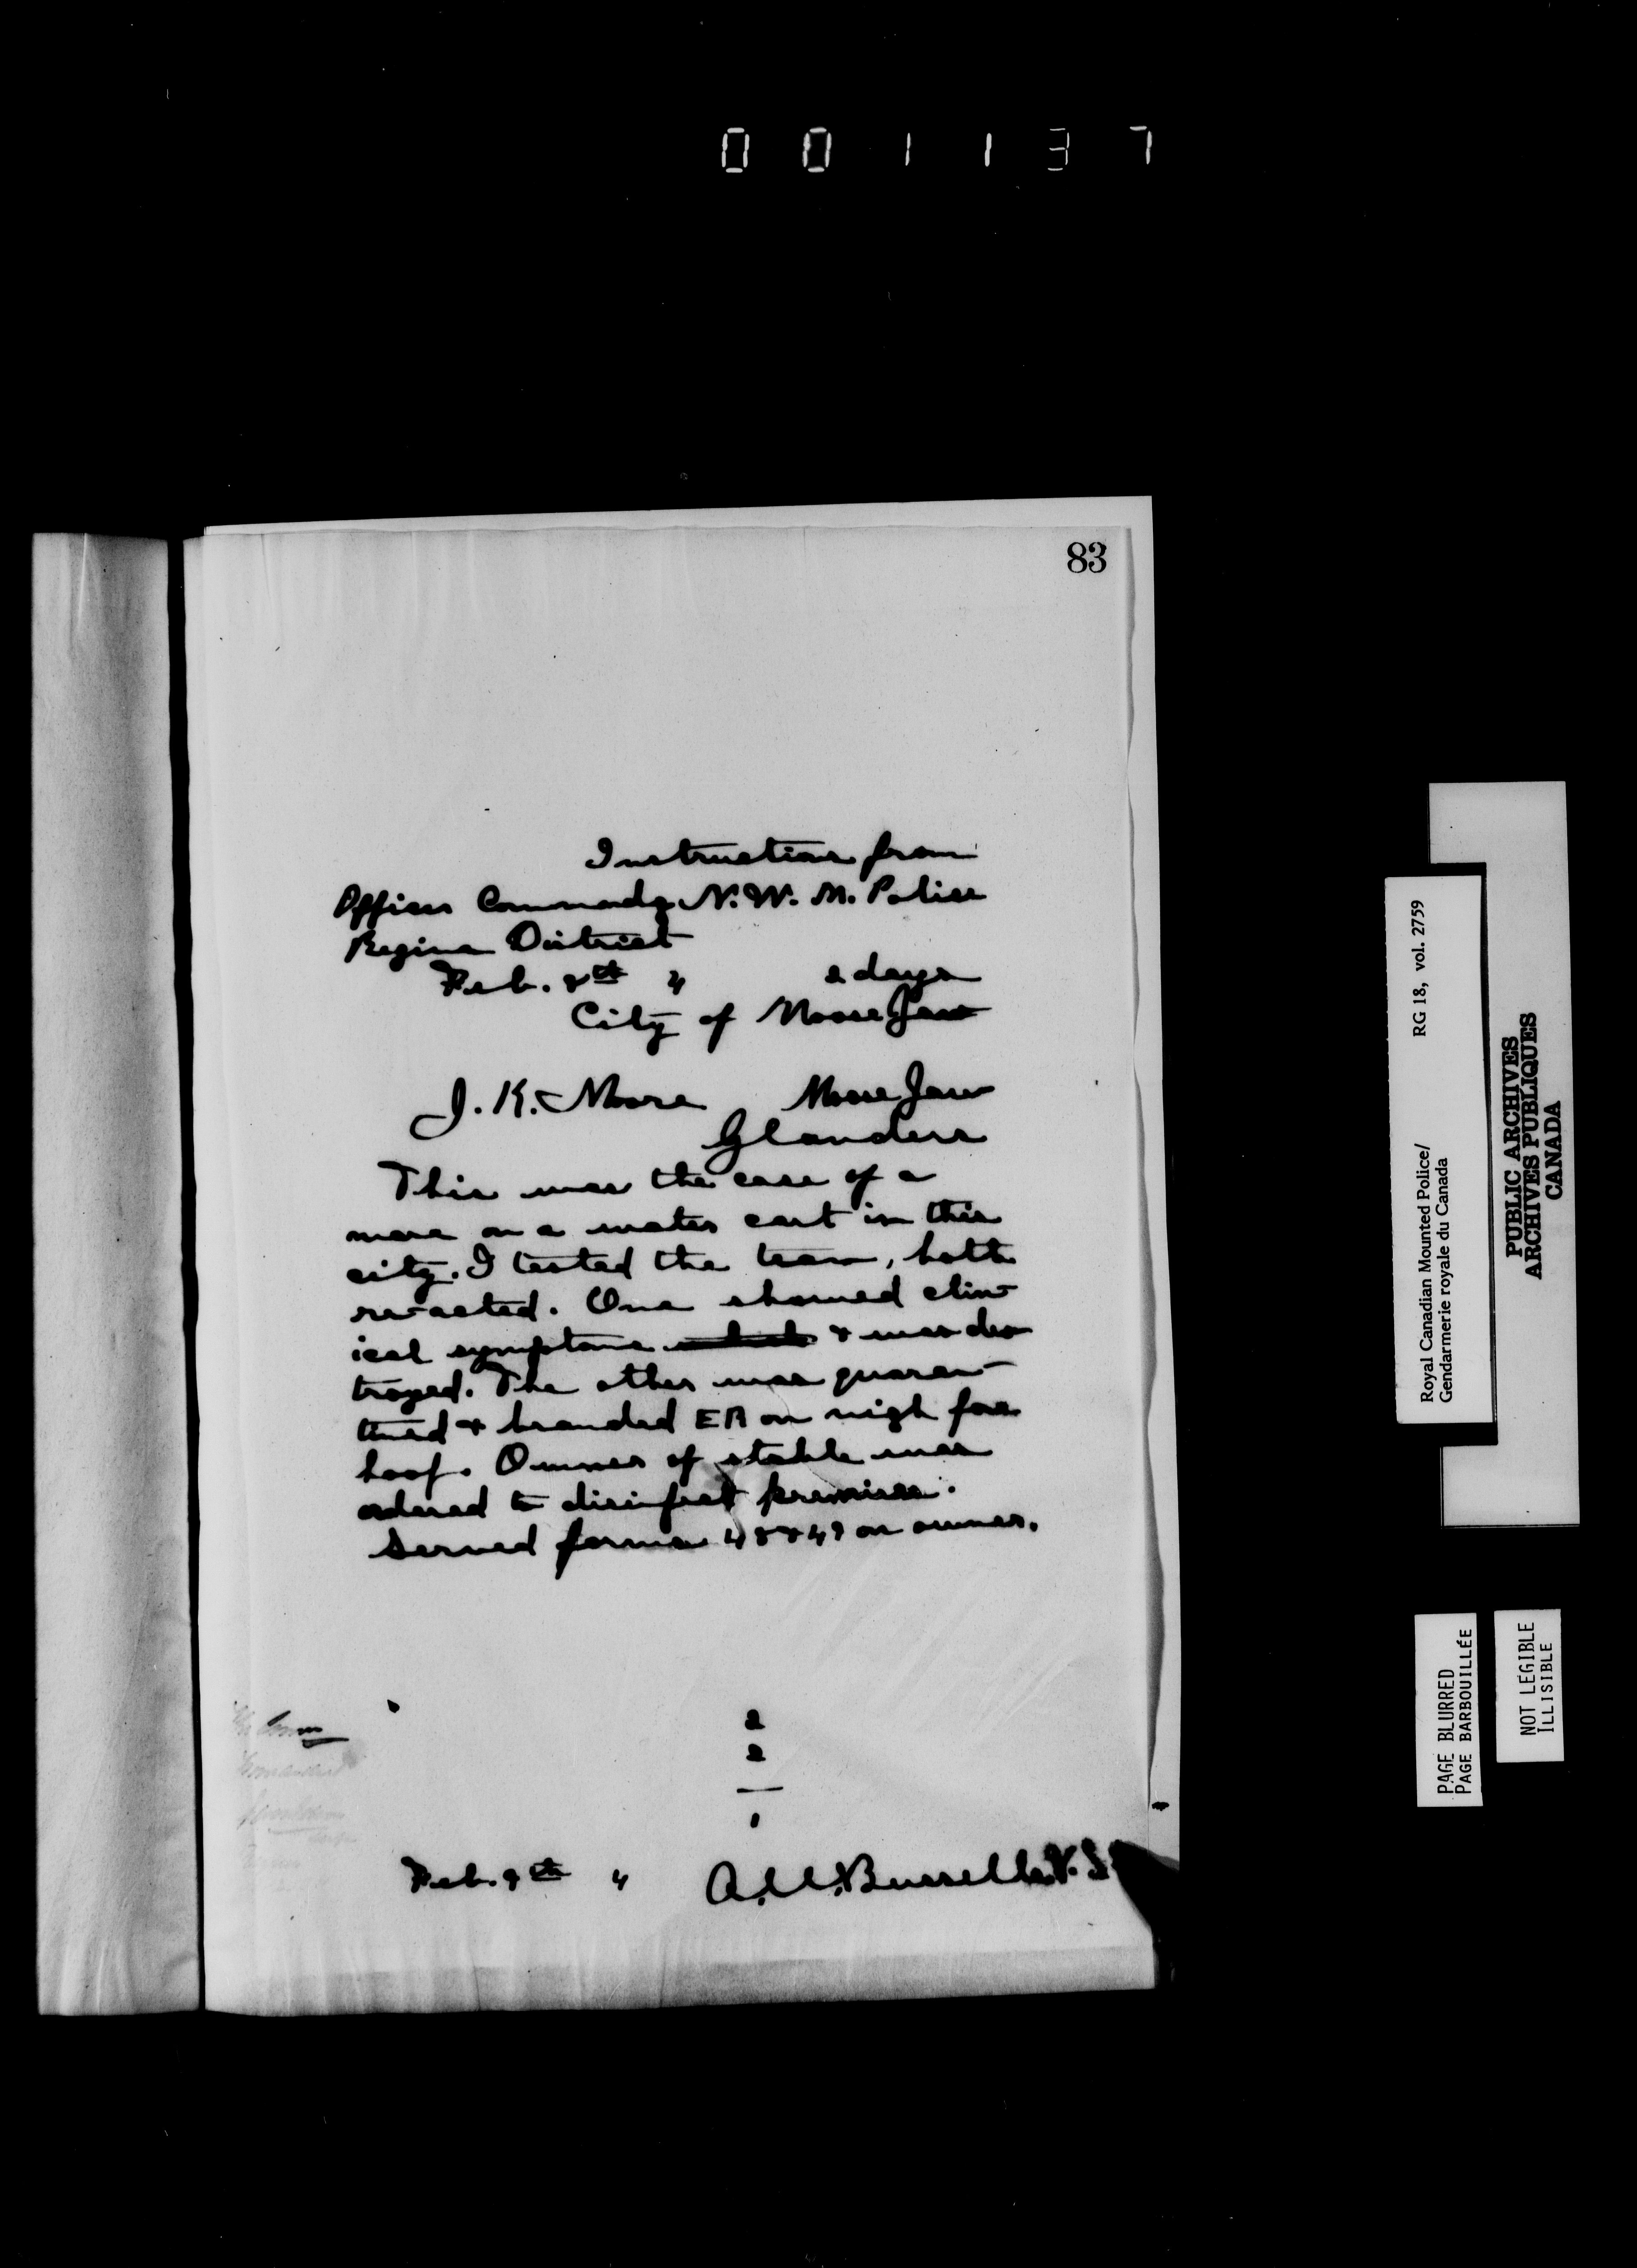 0 0 1 1 3 7
83
Instructions from
Officer Commandg N. W. M. Police
Regina District
Feb. 8th 4 2 days
City of Moose Jaw
J. K. Moore Moose Jaw
Glanders
This was the case of a
mare on a water cart in this
city. I tested the team, both
re-acted. One showed clin-
ical symptoms & was des
troyed. The other was quaran-
tined & branded EA on nigh fore
hoof. Owner of stable was
ordered to disinfect premises.
Served forms 48 & 49 on owner.
2
2
1
Feb. 9th 4 Bussell V. S
Royal Canadian Mounted Police/ RG 18, vol. 2759
Gendarmerie royale du Canada
PUBLIC ARCHIVES
ARCHIVES PUBLIQUES
CANADA
PAGE BLURRED
PAGE BARBOUILLÉE
NOT LEGIBLE
ILLISIBLE